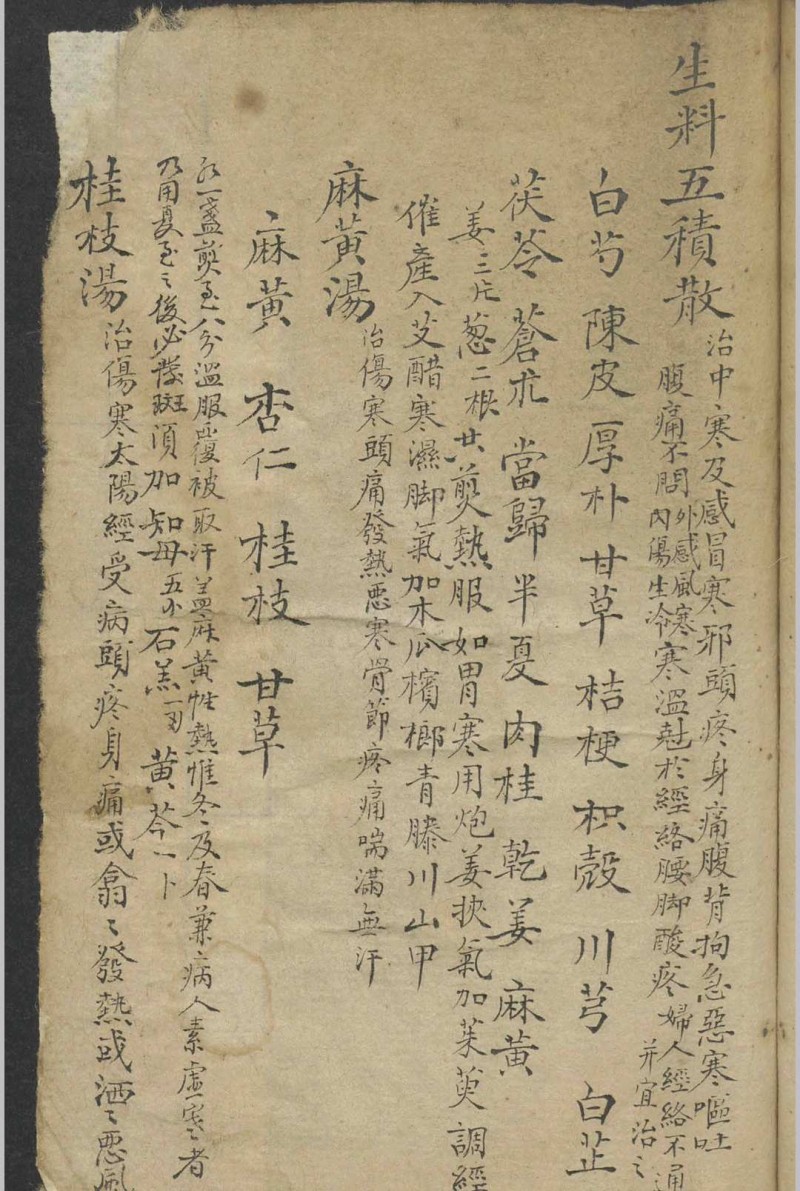 生料五積散
治中寒及感冒寒邪頭疼身痛腹背拘急惡寒嘔吐
腹痛不問外感風寒內傷生冷寒溫尅於經絡腰脚酸疼婦人經絡不通
并宜治之
白芍 陳皮 厚朴 甘草 桔梗 枳殼 川芎 白芷
茯苓 蒼朮 當歸 半夏 肉桂 乾姜 麻黃
姜三片葱二根共煎熱服如胃寒用炮姜挾氣加茱萸調經
催產入艾醋寒濕脚氣加木瓜檳榔青滕川山甲
麻黃湯
治傷寒頭痛發熱悪寒骨節疼痛喘滿無汗
麻黃 杏仁 桂枝 甘草
水一盞煎至八分溫服覆被取汗盖麻黃性熱惟冬及春兼病人素虛寒者
乃用夏至之後必發斑須加知母五小石羔一刃黃芩一卜
桂枝湯
治傷寒太陽經受病頭疼身痛或翕〻發熱或洒〻悪風